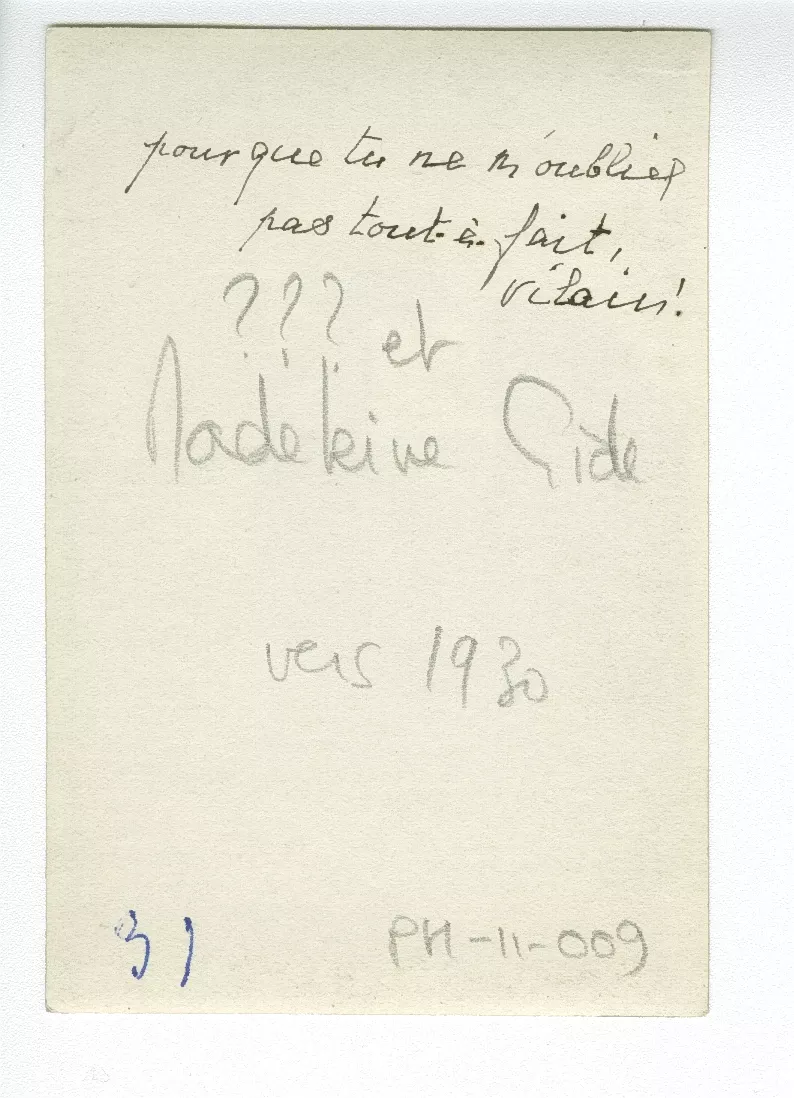 pour que tu ne m'oublies
pas tout-à-fait,
vilain!
??? et
Madeleine Gide
vers 1930
3)
PH-11-009